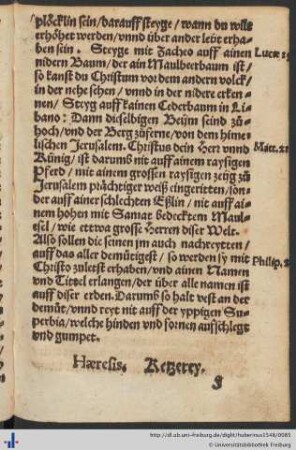 plöcklin sein / darauff steyge / wann du wilt
erhöhet werden / vnnd über ander leüt erha-
ben sein. Steyge mit Zacheo auff ainen
nidern Baum / der ain Maulberbaum ist /
so kanst du Christum vor dem andern volck /
in der nehe sehen / vnnd in der nidere erken-
nen / Steyg auff kainen Cederbaum in Li-
bano: Dann dieselbigen Beüm seind zů
hoch / vnd der Berg zůferne / von dem himel-
lischen Jerusalem. Christus dein Herr vnnd
Künig / ist darumb nit auff ainem raysigen
Pferd / mit ainem grossen raysigen zeüg zů
Jerusalem prächtiger weiß eingeritten / son-
der auff ainer schlechten Eßlin / nit auff ai-
nem hohen mit Samat bedecktem Maul-
esel / wie ettwa grosse Herren diser Welt.
Also sollen die seinen jm auch nachreytten /
auff das aller demütigest / so werden sy mit
Christo zuletst erhaben / vnd ainen Namen
vnd Tittel erlangen / der über alle namen ist
auff diser erden. Darumb so halt vest an der
demůt / vnnd reyt nit auff der yppigen Su-
perbia / welche hinden vnd fornen auffschlegt
vnd gumpet.
Hæresis. Ketzerey.
Lucæ
Matt. 21
Philip.
© Universitätsbibliothek Freiburg
http://dl.ub.uni-freiburg.de/diglit/hubermus1546/0085